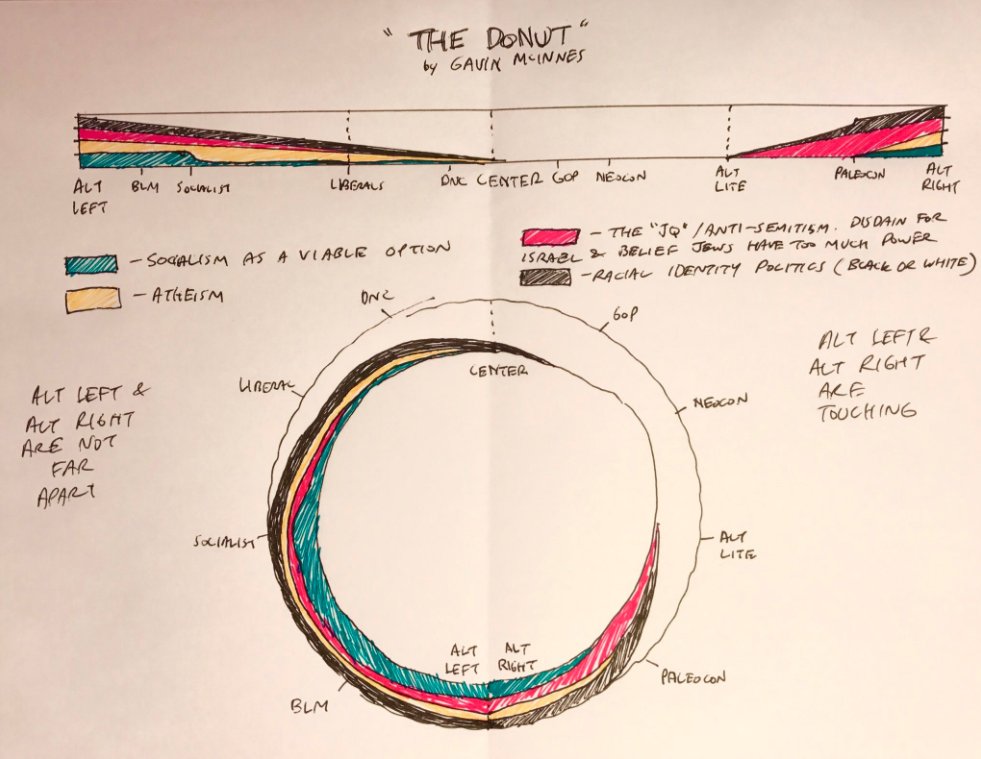 "THE DONUT"
by GAVIN McINNES
ALT LEFT
BLM
SOCIALIST
LIBERALS
DNC
CENTER
GOP
NEOCON
ALT LITE
PALEOCON
ALT RIGHT
- SOCIALISM AS A VIABLE OPTION
- ATHEISM
- THE "JQ"/ANTI-SEMITISM. DISDAIN FOR
ISRAEL & BELIEF JEWS HAVE TOO MUCH POWER
- RACIAL IDENTITY POLITICS (BLACK OR WHITE)
DNC
GOP
CENTER
LIBERAL
NEOCON
ALT LEFT &
ALT RIGHT
ARE NOT
FAR
APART
ALT LEFT &
ALT RIGHT
ARE
TOUCHING
SOCIALIST
ALT
LITE
ALT
LEFT
ALT
RIGHT
PALEOCON
BLM